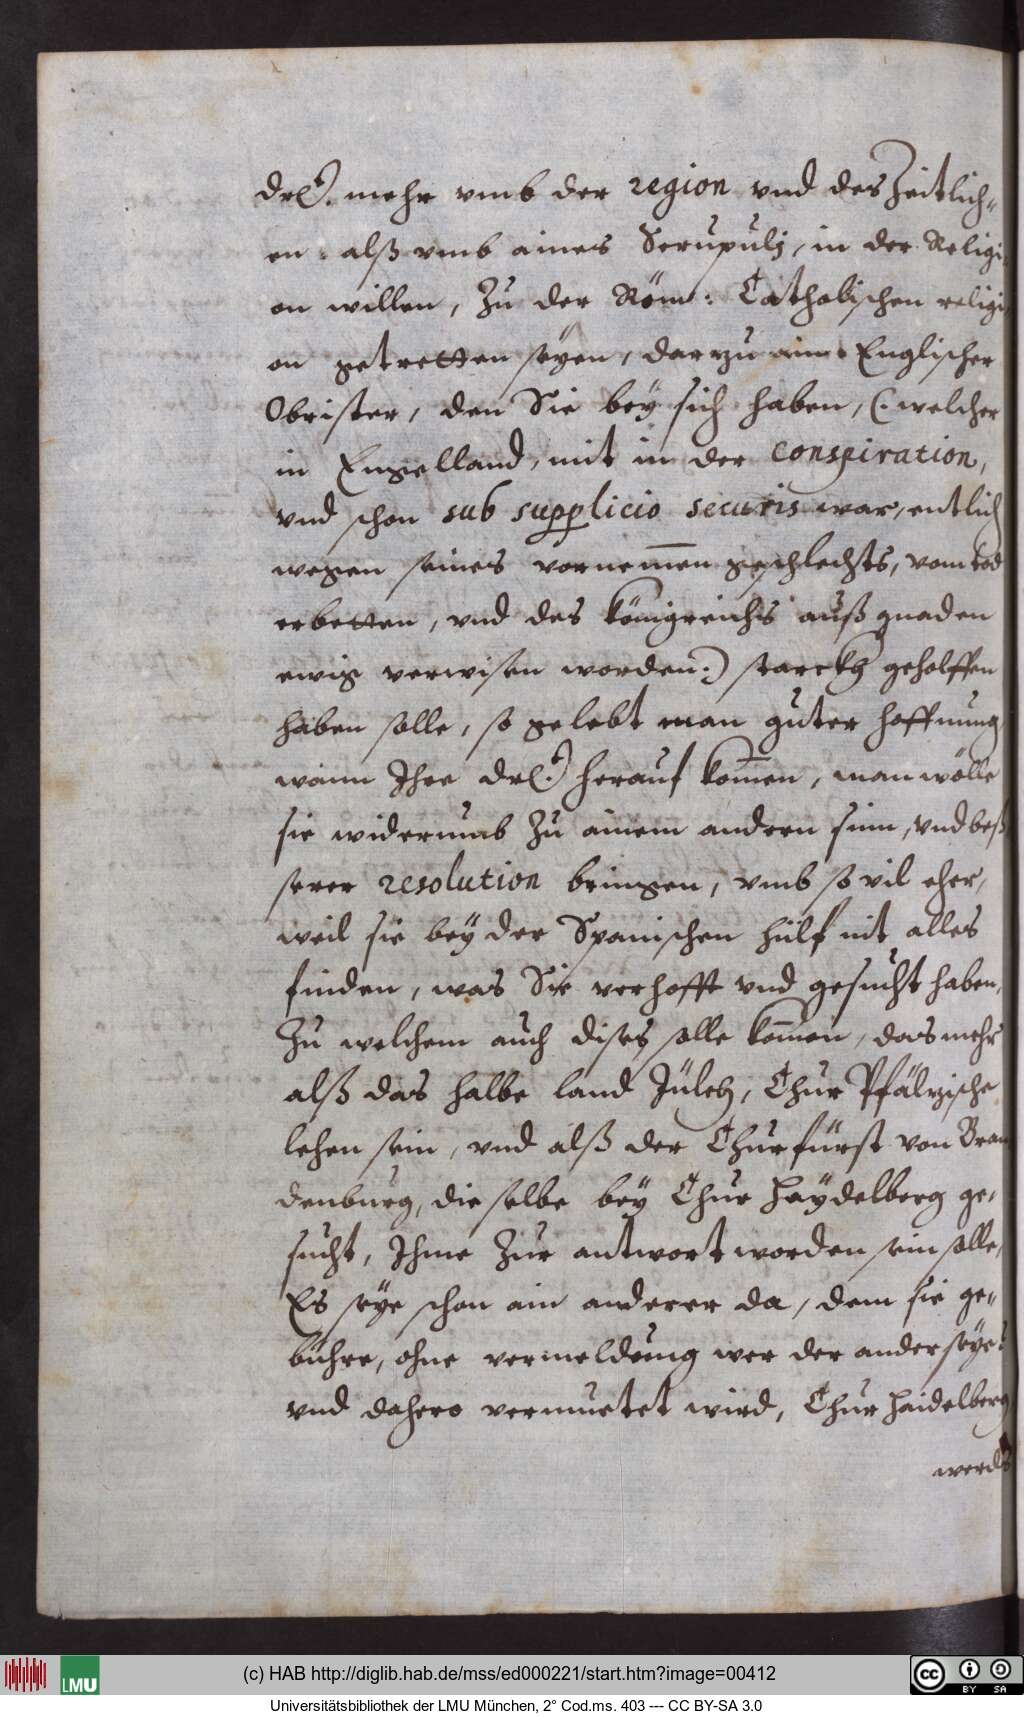 drl. mehr vmb der region vnd des Zeitlich„
en alß vmb aines Scrupulj, in der Religi
on willen, Zu der Röm: Catholischen religi
on getretten seyen, darzu ain Englischer
Obrister, den Sie bey sich haben, (: welcher
in Engelland, mit in der conspiration,
vnd schon sub supplicio securis war, entlich
wegen seines vornem̄en geschlechts, vom tod
erbetten, vnd des königreichs auß gnaden
ewig verwisen worden:) starckh geholffen
haben solle, so gelebt man guter hoffnung
wann Ihre drl. herauf kom̄en, man wölle
sie widerumb Zu ainem andern sinn, vnd beß
serer resolution bringen, vmb so vil eher,
weil sie bey der Spanischen hülf nit alles
finden, was Sie verhofft vnd gesucht haben,
Zu welchem auch dises solle kom̄en, das mehr
alß das halbe land Jülch, Chur Pfälzische
lehen sein, vnd alß der Churfürst von Bran
denburg, dieselbe bey Chur Haydelberg ge„
sucht, Ihme Zur antwort worden sein solle,
Es seye schon ain anderer da, dem sie ge„
bühre, ohne vermeldung wer der ander seye:
vnd dahero vermuetet wird, Chur Haidelberg
werds
(c) HAB http://diglib.hab.de/mss/ed000221/start.htm?image=00412
LMU
CC BY SA
Universitätsbibliothek der LMU München, 2° Cod.ms. 403 --- CC BY-SA 3.0